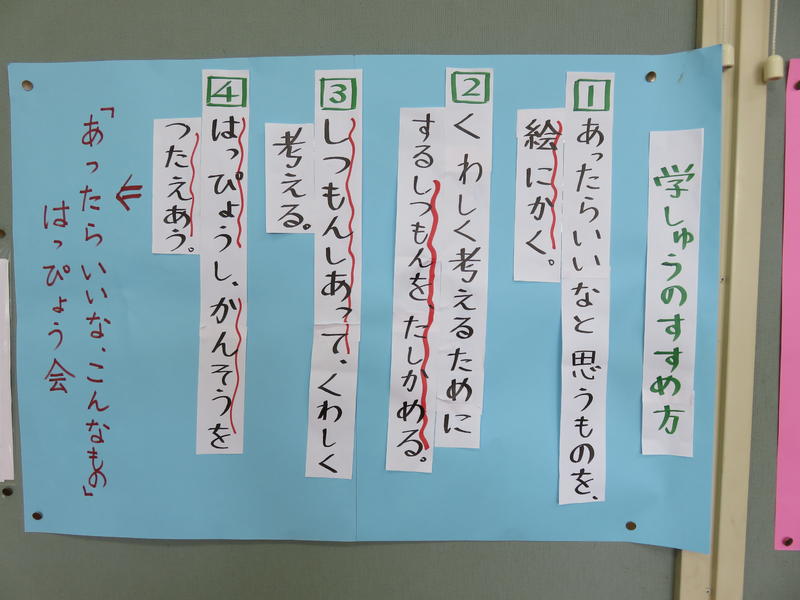 学しゅうのすすめ方
1 あったらいいなと思うものを、
絵にかく。
2 くわしく考えるために
するしつもんを、たしかめる。
3 しつもんしあって、くわしく
考える。
4 はっぴょうし、かんそうを
つたえあう。
⇐
「あったらいいな、こんなもの」
はっぴょう会